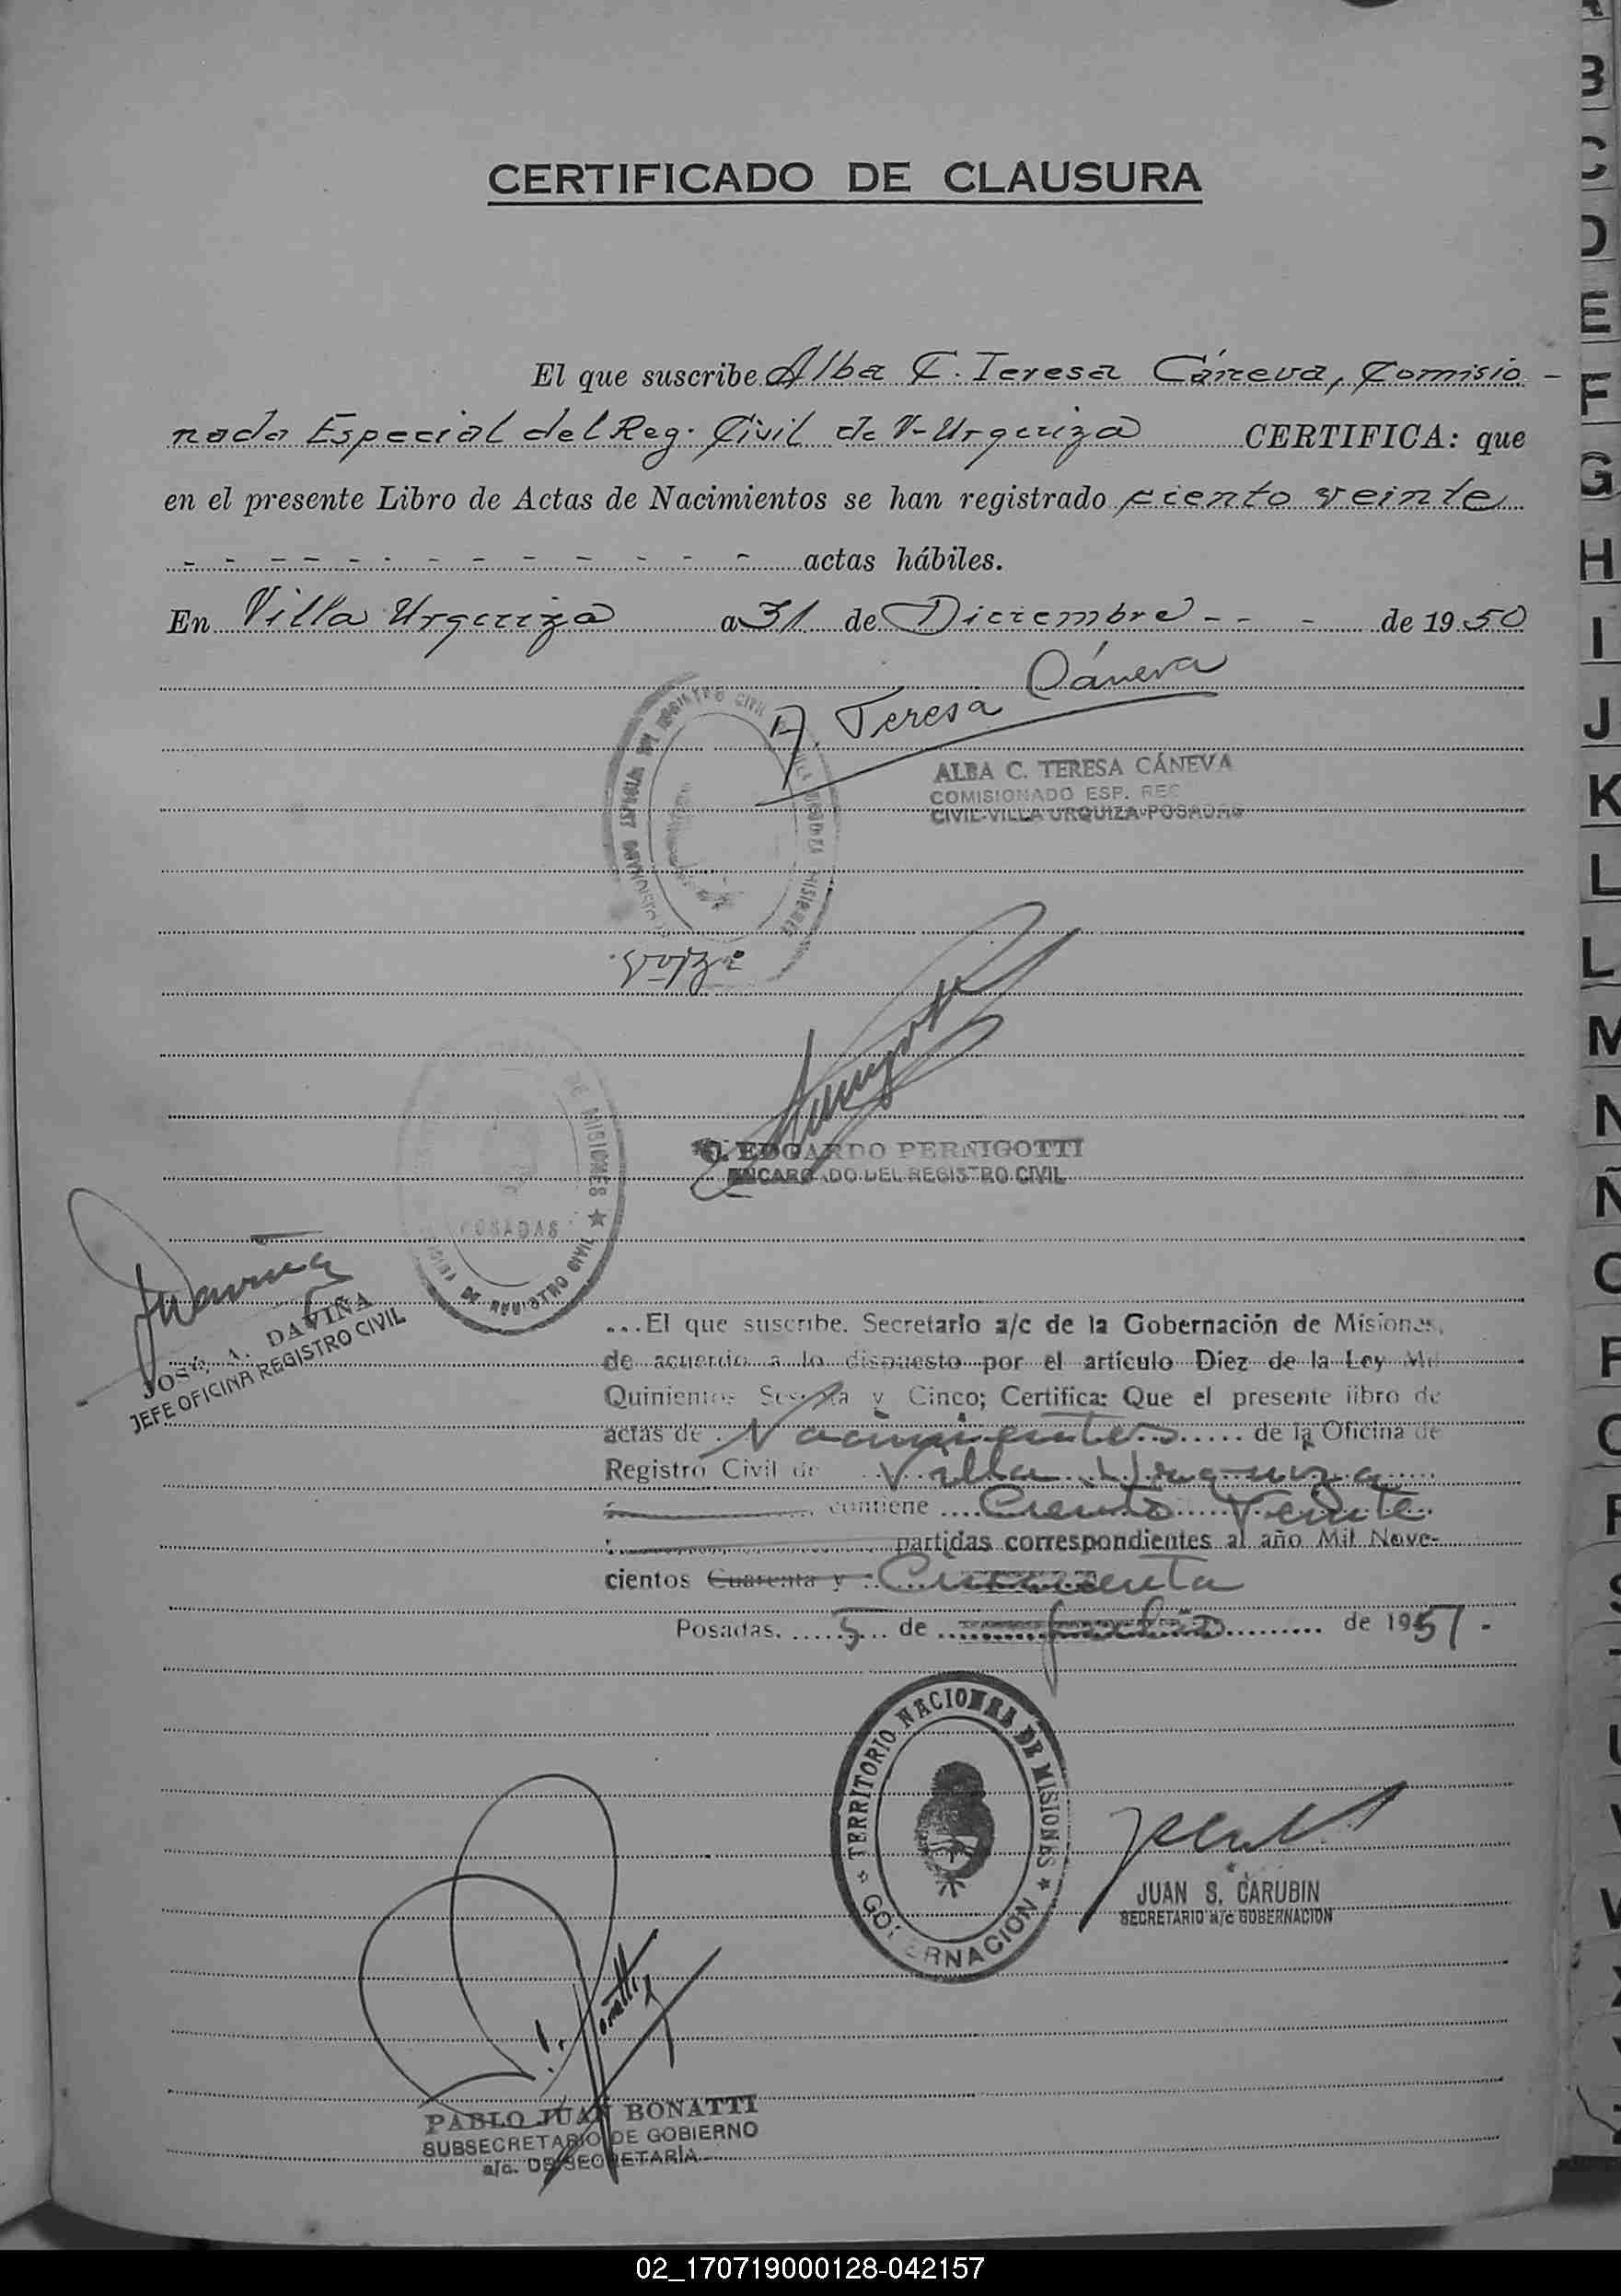 CERTIFICADO DE CLAUSURA
El que suscribe Alba C. Teresa Cáneva, Comisio-
nada Especial del Reg. Civil de V- Urquiza CERTIFICA: que
en el presente Libro de Actas de Nacimientos se han registrado ciento veinte
- - - - - - - - - - - - - - actas hábiles.
En Villa Urquiza a 31 de Diciembre - - - de 1950
A. Teresa Cáneva
ALBA C. TERESA CÁNEVA
COMISIONADO ESP. REG
CIVIL-VILLA URQUIZA-POSADAS
REGISTRO CIVIL
MISIONES
EDGARDO PERNIGOTTI
ENCARGADO DEL REGISTRO CIVIL
DE MISIONES ★
POSADAS
REGISTRO CIVIL
JOSÉ A. DAVIÑA
JEFE OFICINA REGISTRO CIVIL
...El que suscribe. Secretario a/c de la Gobernación de Misiones,
de acuerdo a lo dispuesto por el artículo Diez de la Ley Mil
Quinientos Sesenta y Cinco; Certifica: Que el presente libro de
actas de Nacimientos de la Oficina de
Registro Civil de Villa Urquiza
contiene Ciento Veinte
partidas correspondientes al año Mil Nove-
cientos Cuarenta y Cincuenta
Posadas. 5 de de 1951.-
★ TERRITORIO NACIONAL DE MISIONES ★
GOBERNACION
JUAN S. CARUBIN
SECRETARIO a/c GOBERNACION
PABLO JUAN BONATTI
SUBSECRETARIO DE GOBIERNO
a/c. DE SECRETARÍA
B
C
D
E
F
G
H
I
J
K
L
L
M
N
Ñ
O
P
Q
R
S
02_170719000128-042157